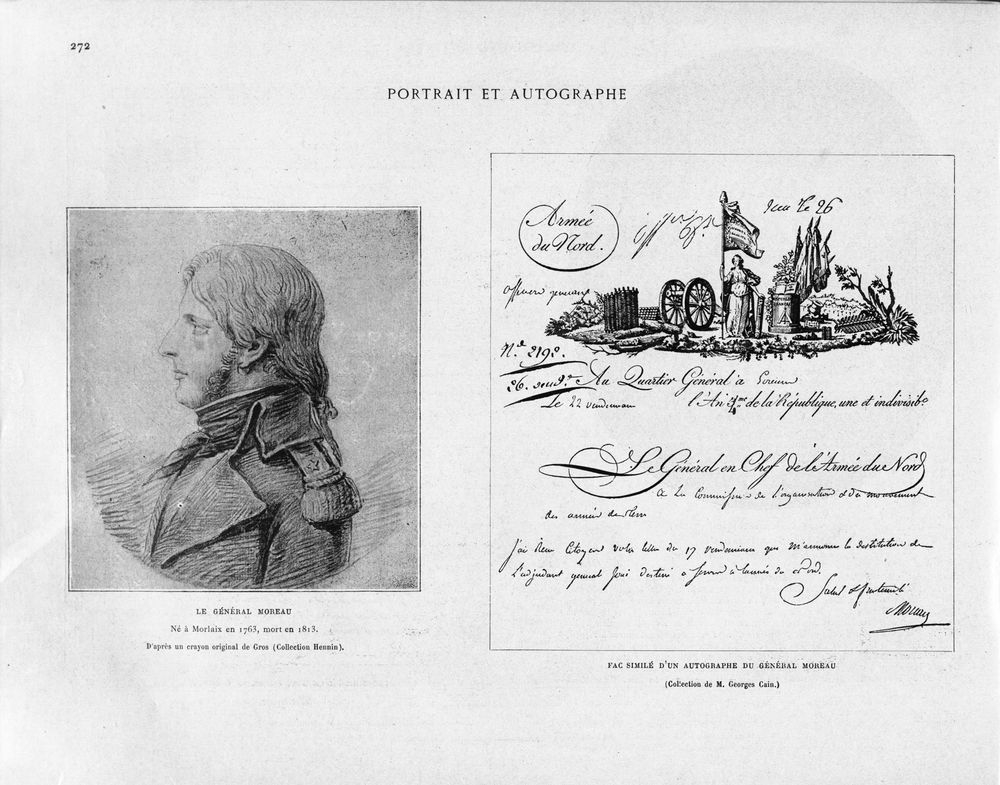 272
PORTRAIT ET AUTOGRAPHE
LE GÉNÉRAL MOREAU
Né à Morlaix en 1763, mort en 1813.
D'après un crayon original de Gros (Collection Hennin).
Armée
du Nord.
Officiers generaux
N.º 2192.
Au Quartier Général à
Le 22 vendemiaire
l'An 4me de la République, une et indivisible
Le Général en Chef de l'Armée du Nord
A La Commission de l'organisation et du mouvement
des armées de Terre
j'ai Reçu Citoyens votre lettre du 17 vendemiaire qui m'annonce la destitution de
L'adjudant general destiné a servir à l'armée du Nord.
Salut et fraternité
Moreau
FAC SIMILÉ D'UN AUTOGRAPHE DU GÉNÉRAL MOREAU
(Collection de M. Georges Cain.)